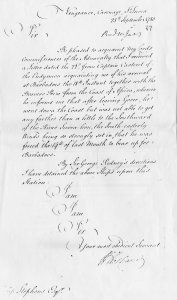 Vengeance, Carenage, S.t Lucia
23.d September 1780
Sir
Be pleased to acquaint my Lords
Commissioners of the Admiralty that I received
a letter dated the 22.d from Captain Cadman of
the Pedymine acquainting me of his arrival
at Barbadoes the 18.th Instant together with the
from the Coast of Africa, wherein
he informs me that after leaving Goree, he
went down the Coast but was not able to get
any farther than a little to the Southward
of the River Sierra Leon, the South easterly
Winds being so strongly set in, that he was
forced the 15.th of last Month to bear up for
Barbadoes.
By Sir George Rodney's directions
I have detained the above Ships upon this
Station.
I am
Sir
Your most obedient Servant
Stephens Esq.r